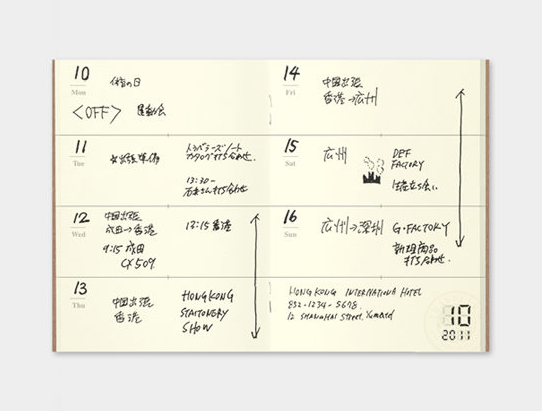 10
Mon
体育の日
<OFF> 運動会
11
Tue
☆出張準備
トラベラーズノート
カタログ打ち合わせ.
13:30-
石井さん打ち合わせ
12
Wed
中国出張
成田→香港
9:15 成田
CX 509
13:15 香港
13
Thu
中国出張
香港
HONGKONG
STATIONERY
SHOW
14
Fri
中国出張
香港→広州
15
Sat
広州
DEF
FACTORY
生産立ち会い
16
Sun
広州→深圳
G-FACTORY
新規商品
打ち合わせ.
HONGKONG INTERNATIONA HOTEL
852-1234-5678.
12 SHANGHAI STREET. Yumatd
10
2011